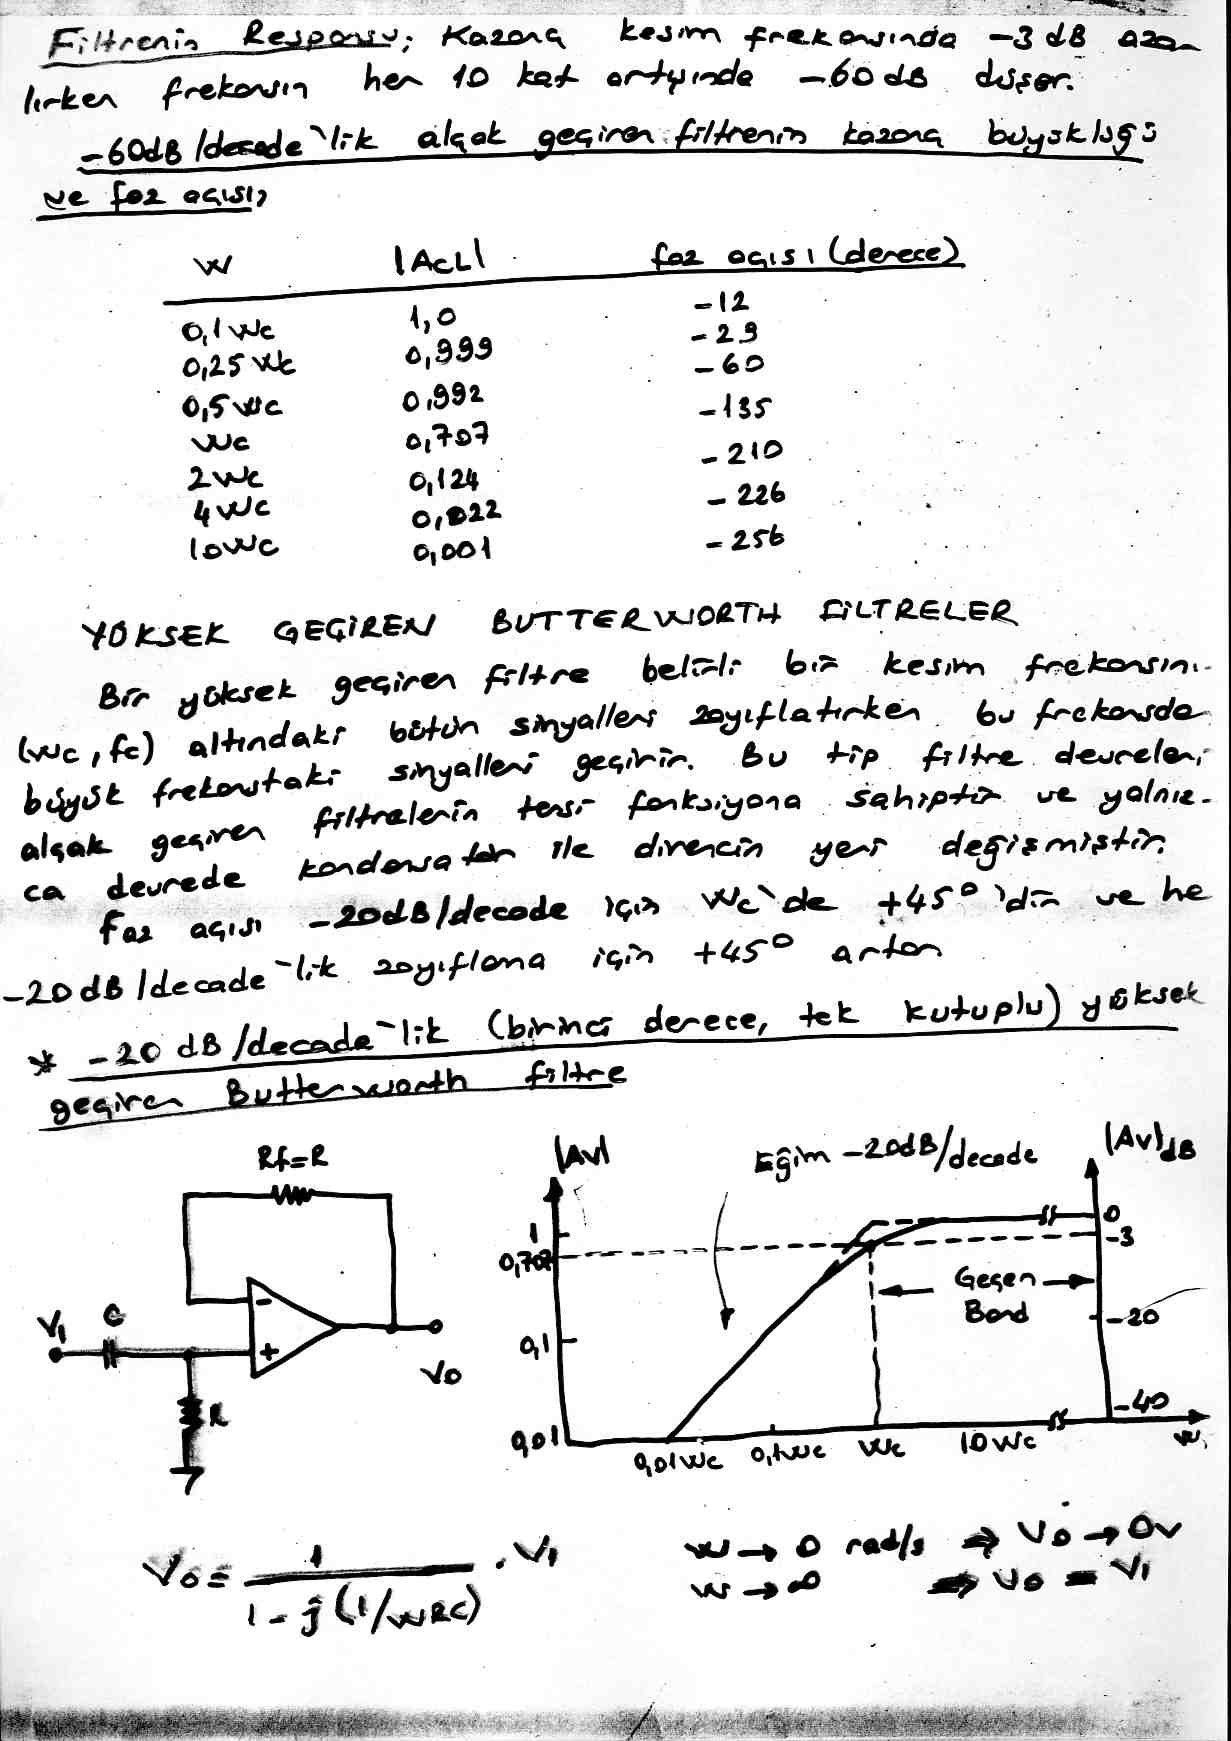 Filtrenin Responsu; Kazanç kesim frekansında -3 dB aza-
lırken frekansın her 10 kat artışında -60 dB düşer.
-60dB/decade'lik alçak geçiren filtrenin kazanç büyüklüğü
ve faz açısı,
W |ACL| faz açısı (derece)
0,1Wc 1,0 -12
0,25Wc 0,999 -29
0,5Wc 0,992 -60
Wc 0,707 -135
2Wc 0,124 -210
4Wc 0,022 -226
10Wc 0,001 -256
YÜKSEK GEÇİREN BUTTERWORTH FİLTRELER
Bir yüksek geçiren filtre belirli bir kesim frekansını-
(wc, fc) altındaki bütün sinyalleri zayıflatırken bu frekansda
büyük frekanstaki sinyalleri geçirir. Bu tip filtre devreleri
alçak geçiren filtrelerin tersi fonksiyona sahiptir ve yalnız-
ca devrede kondansatör ile direncin yeri değişmiştir.
Faz açısı -20dB/decade için Wc'de +45° 'dir ve he
-20dB/decade'lik zayıflama için +45° artar
* -20 dB/decade'lik (birinci derece, tek kutuplu) yüksek
geçiren Butterworth filtre
Rf=R
V1 C
- +
R
Vo
|Av| Eğim -20dB/decade |Av|dB
1 0
0,707 -3
Geçen Band
0,1 -20
0,01 -40
0,01Wc 0,1Wc Wc 10Wc w
Vo = 1 / 1 - j(1/WRC) . V1
w → 0 rad/s ⇒ Vo → 0v
w → ∞ ⇒ Vo = V1